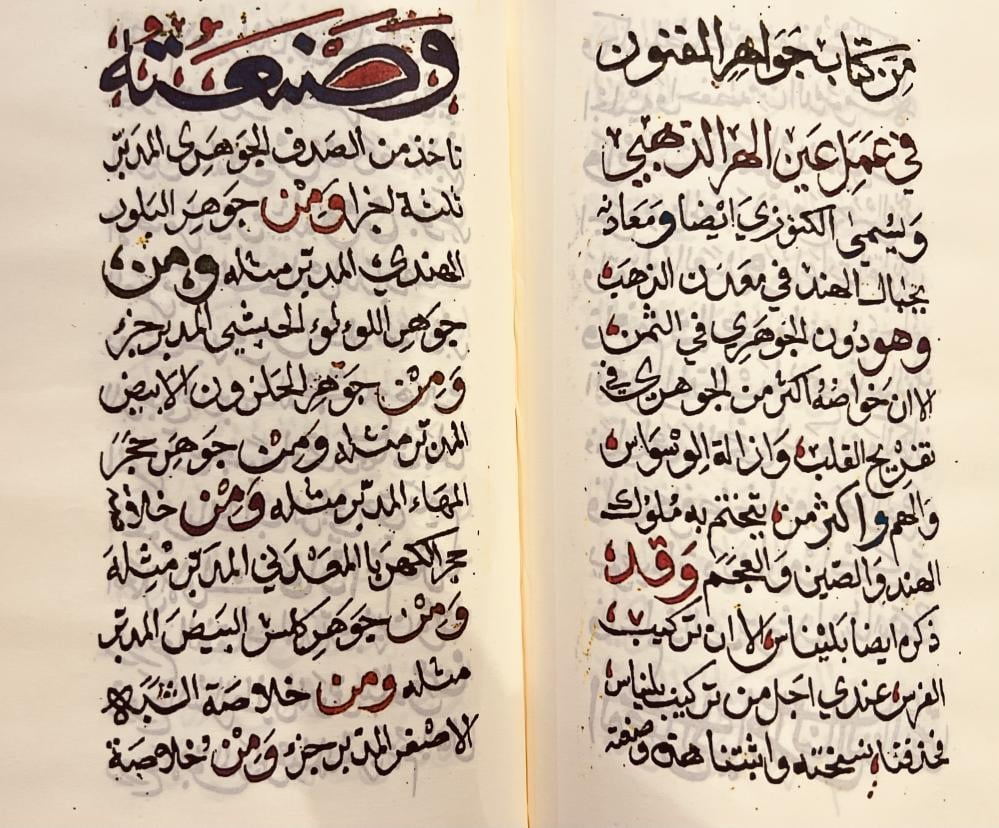 من كتاب جواهر الفنون
في عمل عين الهر الذهبي
ويسمى الكنوزي ايضا ومعادنه
بجبال الهند في معدن الذهب
وهو دون الجوهري في الثمن
الا ان خواصه اكثر من الجوهري في
تفريج القلب وازالة الوسواس
والهم واكثر من يتختم به ملوك
الهند والصين والعجم وقد
ذكره ايضا بليناس الا ان تركيب
الفرس عندي اجل من تركيب بليناس
فحذفنا نسخته واثبتنا هذه وصفته
وصنعته
تاخذ من الصدف الجوهري المدبر
ثلثة اجزا ومن جوهر البلور
الهندي المدبر مثله ومن
جوهر اللوء لوء الحبشي المدبر جزء
ومن جوهر الحلزون الابيض
المدبر مثله ومن جوهر حجر
المهاء المدبر مثله ومن خلاصة
حجر الكهربا المعدني المدبر مثله
ومن جوهر كلس البيض المدبر
مثله ومن خلاصة الشبه
الاصفر المدبر جزء ومن خلاصة